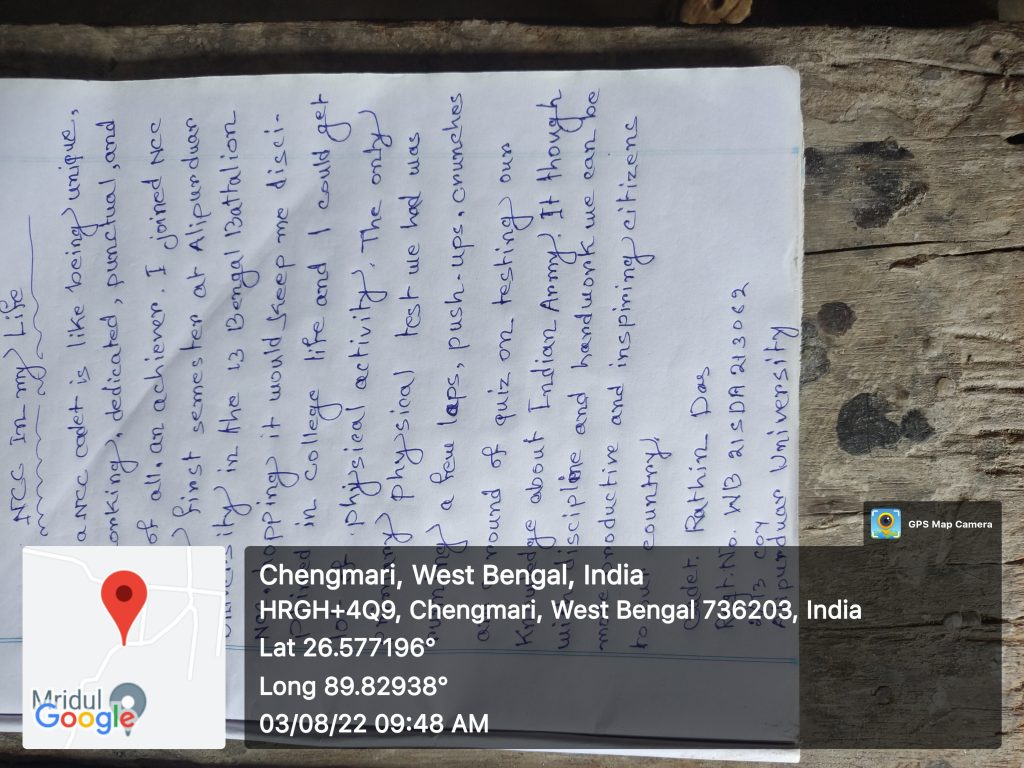 NCC In my Life
a NCC cadet is like being unique,
dedicated, punctual, and
of all, an achiever. I joined NCC
first semester at Alipurduar
in the 13 Bengal Battalion
it would keep me disci-
in College life and I could get
physical activity. The only
Physical test we had was
a few laps, push-ups, crunches
round of quiz on testing our
Knowledge about Indian Army. It though
discipline and hardwork we can be
more productive and inspiring citizens
to our country
Cadet. Rathin Das
Regt. No. WB21SDA213062
COY
Alipurduar University
GPS Map Camera
Chengmari, West Bengal, India
HRGH+4Q9, Chengmari, West Bengal 736203, India
Lat 26.577196°
Long 89.82938°
03/08/22 09:48 AM
Mridul
Google